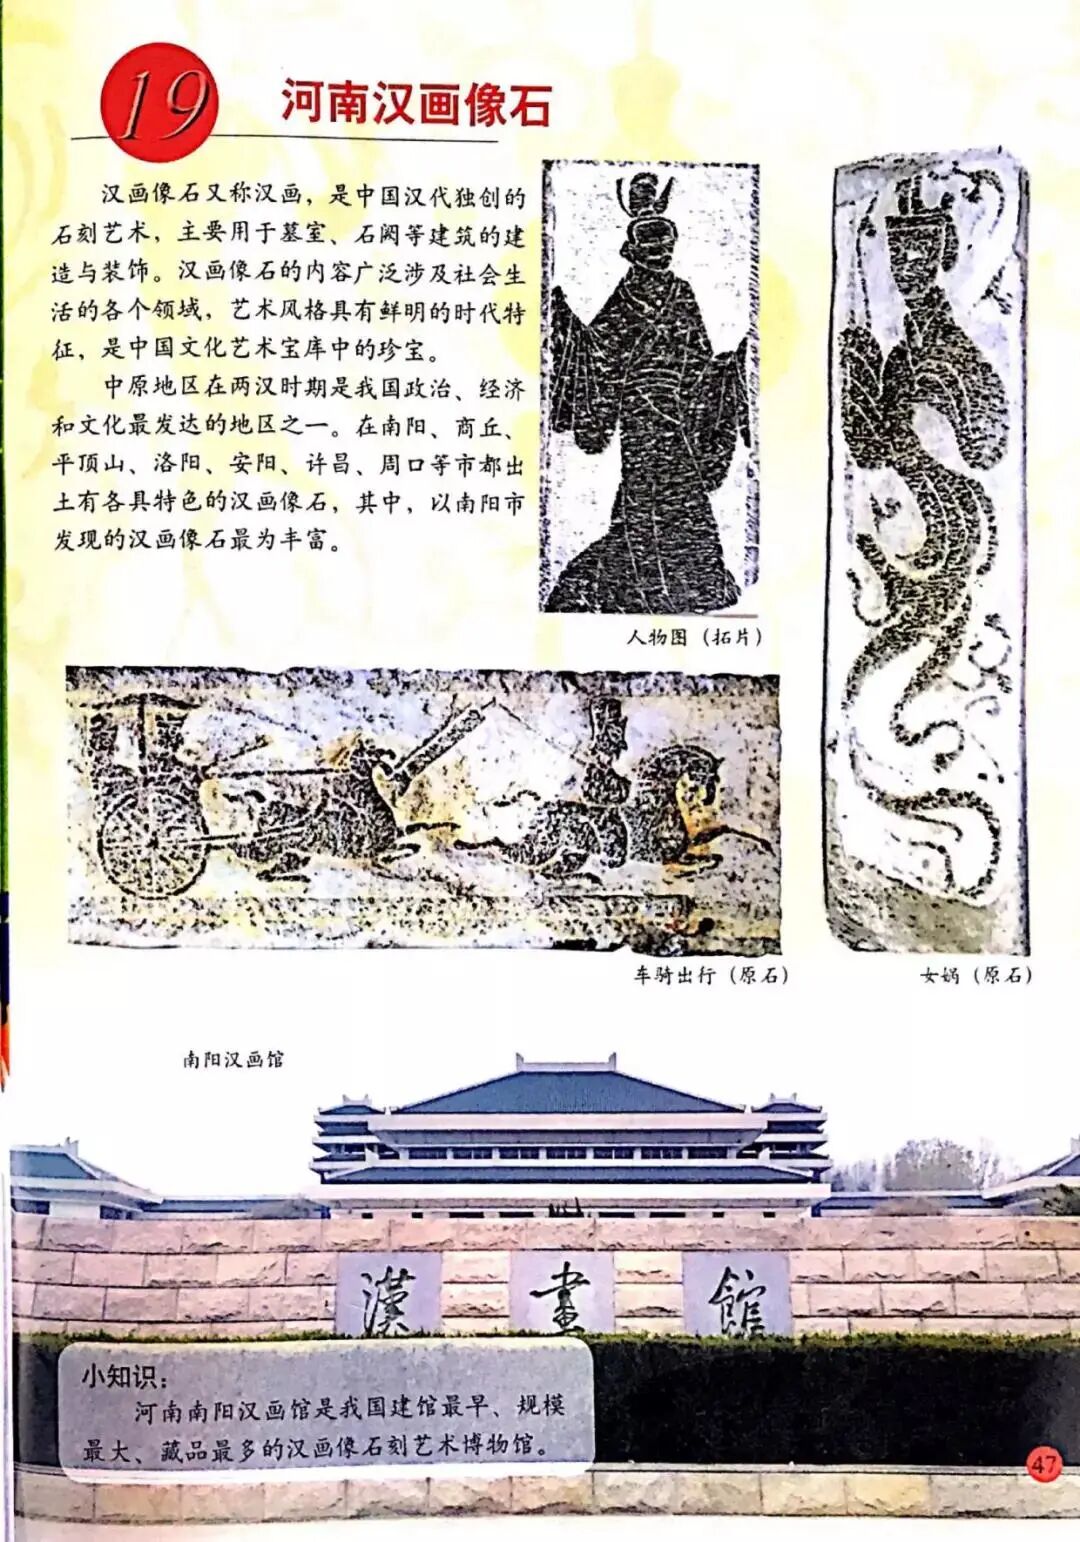 19
河南汉画像石
汉画像石又称汉画，是中国汉代独创的
石刻艺术，主要用于墓室、石阙等建筑的建
造与装饰。汉画像石的内容广泛涉及社会生
活的各个领域，艺术风格具有鲜明的时代特
征，是中国文化艺术宝库中的珍宝。
中原地区在两汉时期是我国政治、经济
和文化最发达的地区之一。在南阳、商丘、
平顶山、洛阳、安阳、许昌、周口等市都出
土有各具特色的汉画像石，其中，以南阳市
发现的汉画像石最为丰富。
人物图（拓片）
车骑出行（原石）
女娲（原石）
南阳汉画馆
漢畫館
小知识：
河南南阳汉画馆是我国建馆最早、规模
最大、藏品最多的汉画像石刻艺术博物馆。
47